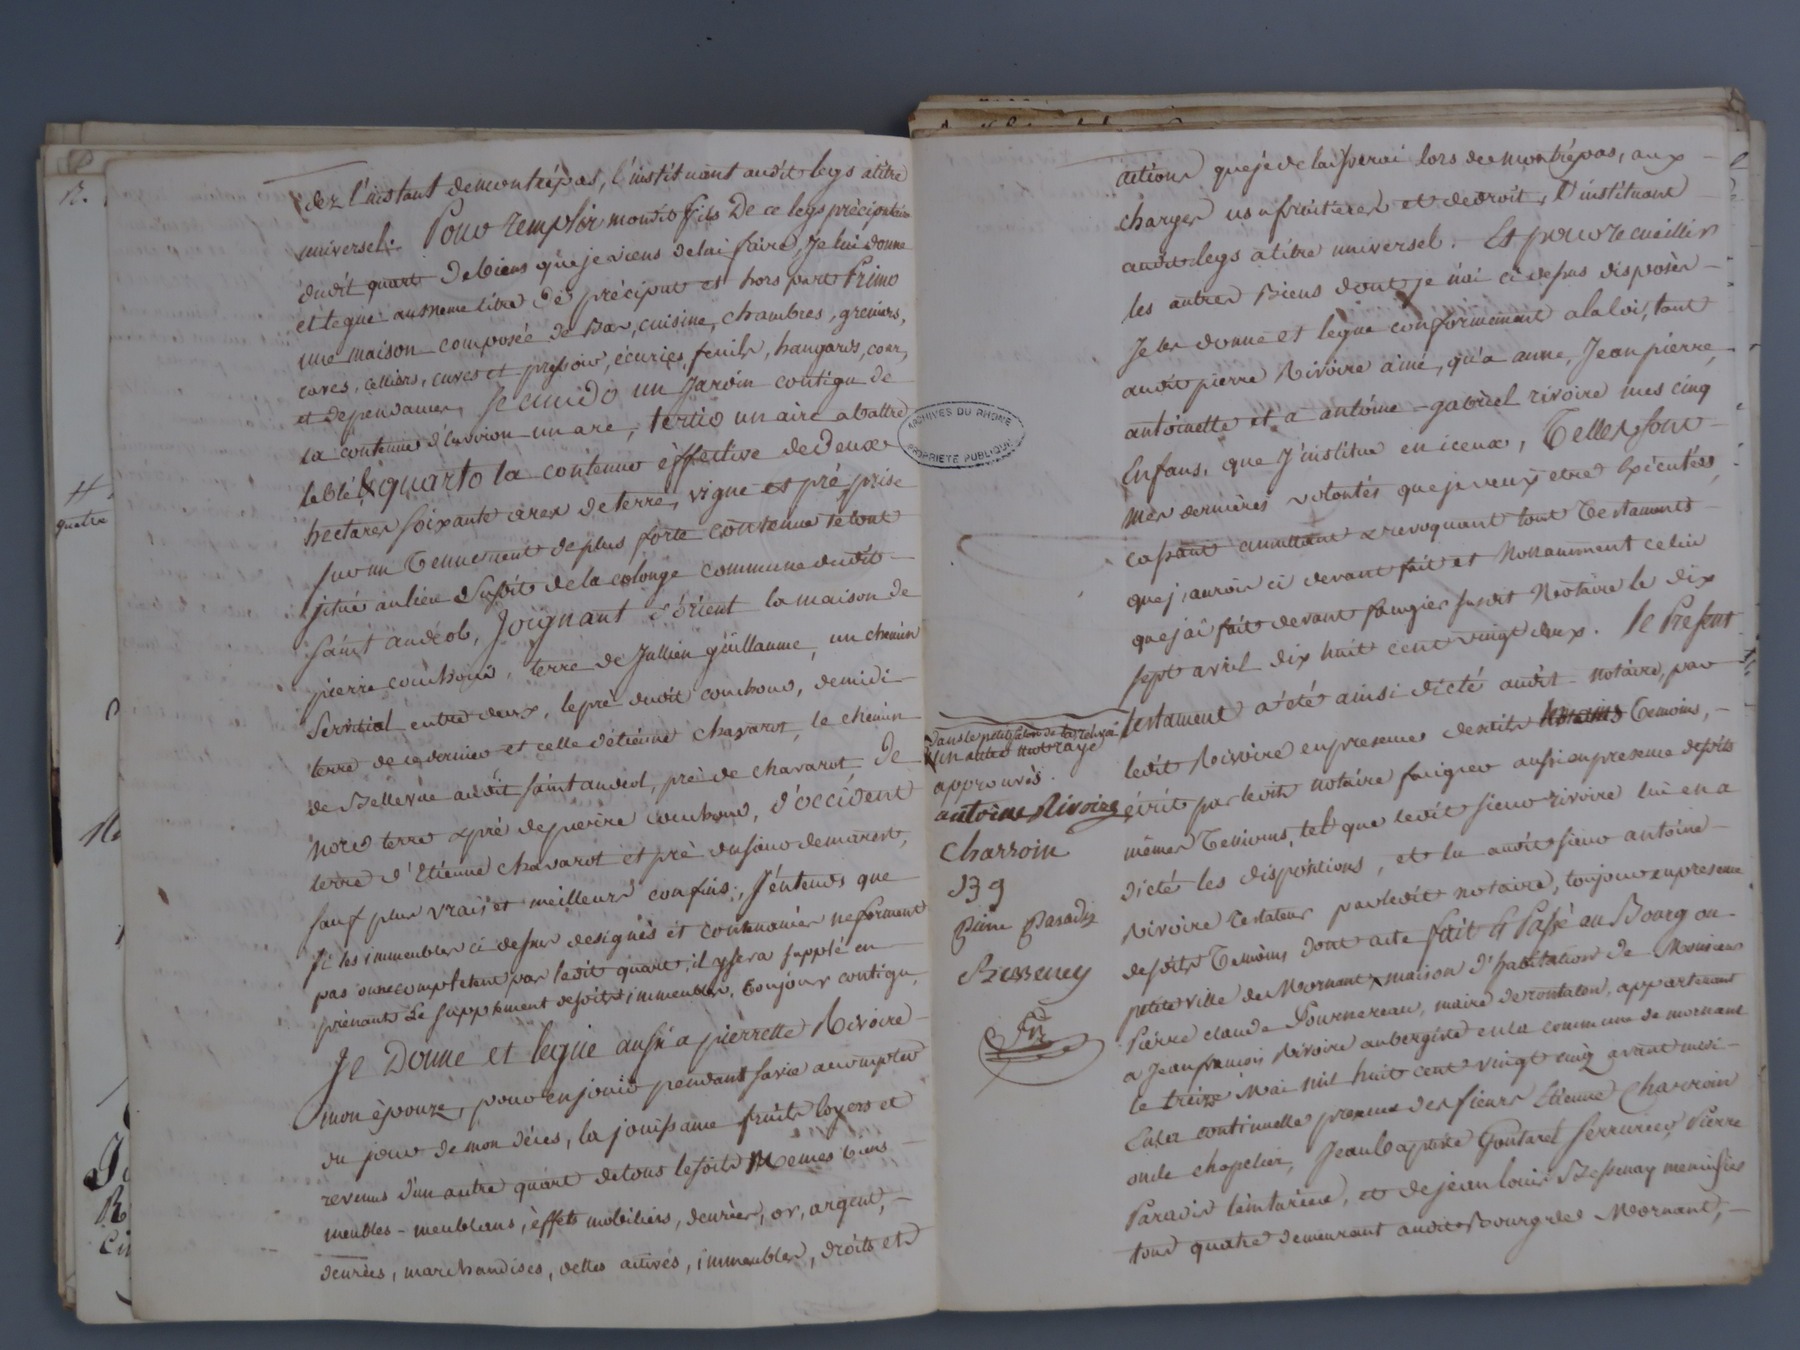 dez l'instant de mon trépas, l'instituant audit legs a titre
universel. Pour remplir mondit fils De ce legs préciputaire
dudit quart De biens que je viens de lui faire, Je lui donne
et legue au meme titre De préciput et hors part Primo
une maison composée de Bas, cuisine, chambres, greniers,
caves, celliers, cuves et pressoir, écuries, fenils, hangards, cour,
et dependances, Secundo un Jardin contigu de
la contenue d'environ un are, tertio un aire a battre
le blé & quarto la contenue èffective de Deux
hectares soixante ares de terre, vigne et pré prise
sur un Tennement de plus forte contenue le tout
situé au lieu Susdit de la colonge commune dudit
saint andéol, Joignant d'órient la maison de
pierre couchoud, terre de Jullien guillaume, un chemin
Servitial entre deux, le pré dudit couchoud, de midi
terre de ce dernier et celle d'étienne chavarot, le chemin
de Bellevue audit saint andéol, pré de chavarot, De
nord terre & pré de pierre couchoud, d'occident
terre d'Etienne chavarot et pré du sieur demarest,
sauf plus vrais et meilleurs confins, J'éntends que
si les immeubles ci dessus designés et continués ne forment
pas onze competent par ledit quart, il y sera supplé en
prenant Le supplément desdits immeubles, toujours contigu,
Je Donne et legue aussi a pierrette Rivoire
mon èpouze, pour en jouir pendant sa vie a compter
du jour de mon déces, la jouissance fruits loyers et
revenus d'un autre quart de tous lesdits Memes biens
meubles-meublans, èffets mobiliers, denrées, or, argent,
denrées, marchandises, dettes actives, immeubles, droits et
ARCHIVES DU RHONE
PROPRIETE PUBLIQUE
actions que je delaisserai lors de mon trépas, aux
charges usufruitieres et de droit, l'instituant
audit legs a titre universel. Et pour recueillir
les autres Biens dont je n'ai ci dessus disposèr
Je les donne et legue conformement a la loi, tant
audit pierre Rivoire ainé, qu'a anne, Jean pierre,
antoinette et a antoine-gabriel rivoire mes cinq
Enfans, que J'institue en iceux, Telles sont
mes dernières volontés que je veux etre èxécutées,
cassant annullant & revoquant tout Testaments
que j'aurois ci devant fait et Notamment celui
que j'ai fait devant faugier susdit Notaire le dix
sept avril dix huit cent vingt deux. le Présent
testament a été ainsi dicté audit notaire, par
ledit Rivoire en presence desdits Temoins,
écrit par ledit notaire faugier aussi en presence desdits
mêmes Temoins, tel que ledit sieur rivoire lui en a
dicté les dispositions, et lu audit sieur antoine
Rivoire Testateur par ledit notaire, toujours en presence
desdits Temoins dont acte fait & Passé au Bourg ou
petite ville de Mornant maison d'habitation de Monsieur
Pierre claude Fournereau, maire de rontalon, appartenant
a Jean françois Rivoire aubergiste en la commune de mornant
le treize Mai mil huit cent vingt cinq avant midi
En la continuelle presence des sieurs Etienne Charroin
oncle chapelier, Jean baptiste Goutarel serrurier, Pierre
Paradis teinturier, et de jean louis Bessenay menuisier
tous quatre demeurant audit Bourg de Mornant,
dans le petit salon de la
un autre mot rayé
approuvés.
antoine Rivoire
Charroin
Bessenay
quatre